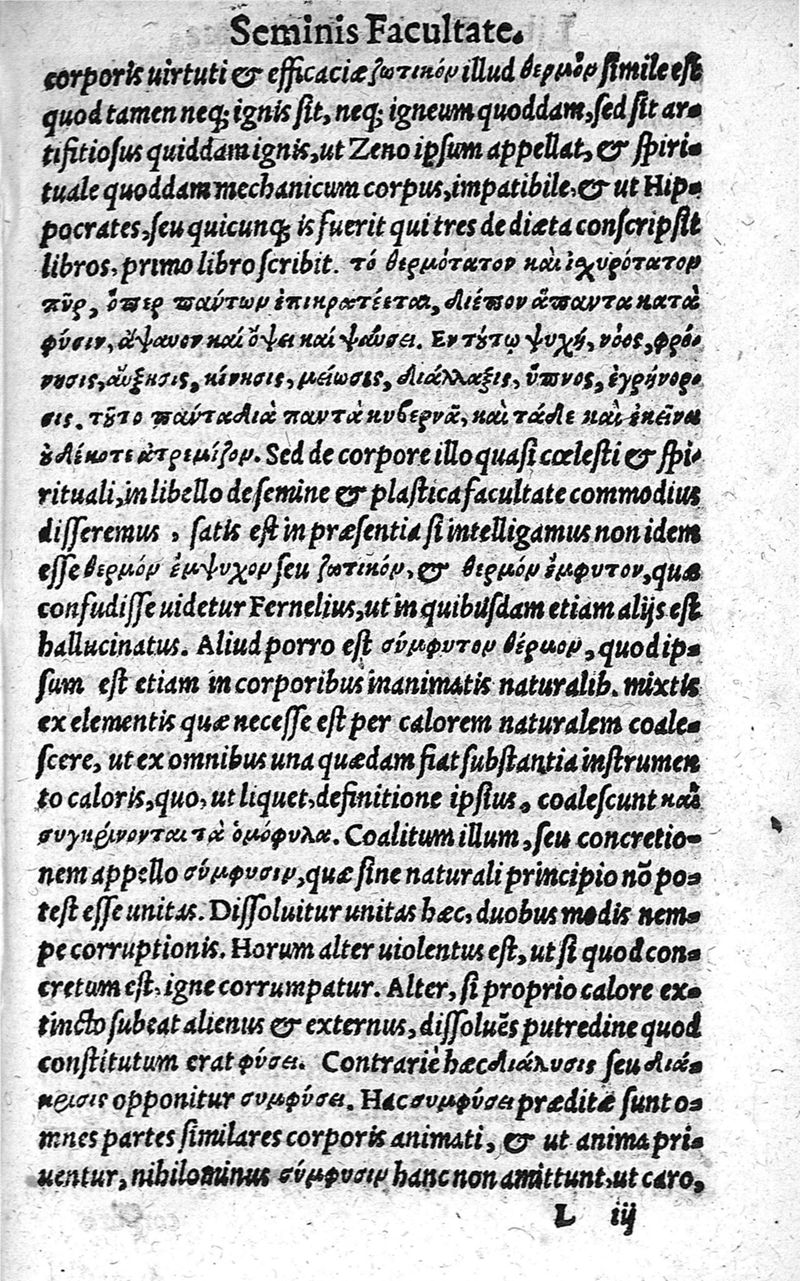 Seminis Facultate.
corporis uirtuti & efficaciæ ζωτικόν illud θερμὸν simile est
quod tamen neq; ignis sit, neq; igneum quoddam, sed sit ar-
tifitiosus quiddam ignis, ut Zeno ipsum appellat, & spiri-
tuale quoddam mechanicum corpus, impatibile, & ut Hip-
pocrates, seu quicunq; is fuerit qui tres de diæta conscripsit
libros, primo libro scribit. τὸ θερμότατον καὶ ἰσχυρότατον
πῦρ, ὅπερ πάντων ἐπικρατέεται, διέπον ἅπαντα κατὰ
φύσιν, ἄψαυον καὶ ὄψει καὶ ψαύσει. Εν τȣ́τῳ ψυχή, νόος, φρό-
νησις, αὔξησις, κίνησις, μείωσις, διάλλαξις, ὕπνος, ἐγρήγορ-
σις. τȣ͂το πάντα διὰ παντὰ κυβερνᾶ, καὶ τάδε καὶ ἐκεῖνα
ȣ̓δέκοτε ἀτρεμίζον. Sed de corpore illo quasi cœlesti & spi-
rituali, in libello de semine & plastica facultate commodius
disseremus, satis est in præsentia si intelligamus non idem
esse θερμόν ἐμψυχον seu ζωτικόν, & θερμόν ἐμφυτον, quæ
confudisse uidetur Fernelius, ut in quibusdam etiam alijs est
hallucinatus. Aliud porro est σύμφυτον θέρμον, quod ip-
sum est etiam in corporibus inanimatis naturalib. mixtis
ex elementis quæ necesse est per calorem naturalem coale-
scere, ut ex omnibus una quædam fiat substantia instrumen
to caloris, quo, ut liquet, definitione ipsius, coalescunt καὶ
συγκρίνονται τὰ ὁμόφυλα. Coalitum illum, seu concretio-
nem appello σύμφυσιν, quæ sine naturali principio nō po-
test esse unitas. Dissoluitur unitas hæc, duobus modis nem-
pe corruptionis. Horum alter uiolentus est, ut si quod con-
cretum est, igne corrumpatur. Alter, si proprio calore ex-
tincto subeat alienus & externus, dissoluēs putredine quod
constitutum erat φύσει. Contrariè hæc διάλυσις seu διά-
κρισις opponitur συμφύσει. Hac συμφύσει præditæ sunt o-
mnes partes similares corporis animati, & ut anima pri-
uentur, nihilominus σύμφυσιν hanc non amittunt, ut caro,
L iij